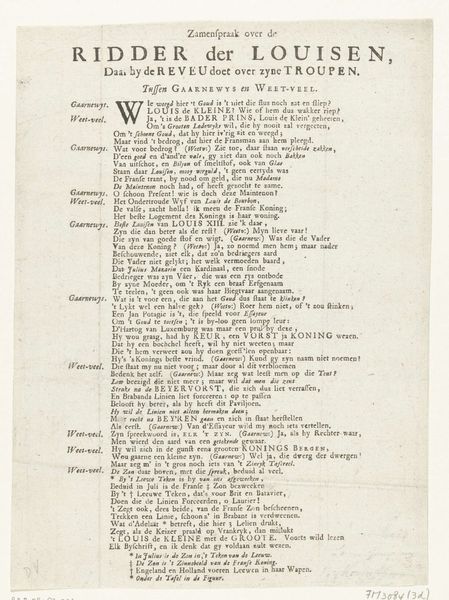 Zamenspraak over de
RIDDER der LOUISEN,
Daar by de REVEU doet over zyne TROUPEN.
Tussen GAARNEWYS en WEET-VEEL.
Gaarnewys. Wie weegd hier 't Goud is 't niet die flus noch zat en sliep?
LOUIS de KLEINE? Wie of hem dus wakker riep?
Weet-veel. Ja, 't is de BADER PRINS, Louis de Klein' geheeten,
Om 's Grooten Lodewyks wil, die hy nooit zal vergeeten,
Om 't schoone Goud, dat hy hier iv'rig zit en weegd;
Maar vind 't bedrog, dat hier de Fransman aan heem pleegd.
Gaarnewys. Wat voor bedrog? (Weetw:) Zie toe, daar staan zakken,
D'een goed en d'and're vals, gy ziet dan ook noch Bakken
Van uitschot, en Biljon of smeltstof, ook van Glas
Staan daar Louisen, moey verguld, 't geen eertyds was
De Franse trant, by nood om geld, die nu Madame
De Maintenon noch had, of heeft gezocht te zame.
Gaarnewys. O schoon Present! wie is doch deze Maintenon?
Weet-veel. Het Ondertroude Wyf van Louis de Bourbon,
De valse, zacht holla! ik meen de Franse Koning;
Het beste Logement des Konings is haar woning.
Gaarnewys. Beste Louisen van LOUIS XIII. zie 'k daar,
Zyn die dan beter als de rest? (Weetw:) Myn lieve vaar!
Die zyn van goede stof en wigt. (Gaarnew:) Was die de Vader
Van deze Koning? (Weetw:) Ja, zo noemd men hem; maar nader
Beschouwende, niet elk, dat zo'n bedriegers aard
Die Vader niet gelykt; het welk vermoeden baard,
Dat Julius Mazarin een Kardinaal, een snode
Bedrieger was zyn Vâer, die was een rys ontbode
By zyne Moeder, om 't Ryk een braaf Erfgenaam
Te teelen, 't geen ook was haar Biegtvaar aangenaam.
Gaarnewys. Wat is 't voor een, die aan het Goud dus staat te
't Lykt wel een halve gek? (Weetw:) Roer hem niet, of 't zou stinken;
Een Jan Potagie is 't, die speeld voor Essayeur
Om 't Goud te toetsen; 't is by-loo geen lomp leur:
D'Hartog van Luxemburg was maar een prul by deze,
Hy wou graag, had hy KEUR, een VORST ja KONING wezen.
Dat hy een bocheltel heeft, wil hy niet weeten; maar
Die 't hem verweet zou hy doen openbaar:
Hy's 's Konings beste vrind. (Gaarnew:) Kund gy zyn naam niet noemen?
Weet-veel. Die staat my nu niet voor; maar door al dit verbloemen
Bedenk het zelf. (Gaarnew:) Maar zeg wat leest men op die Tent?
Leen beezigd die niet meer; maar wil dat men die zent
Straks na de BEYERVORST, die zich dus liet verrassen,
En Brabands Linien liet forceeren: op te passen
Belooft hy beter, als hy heeft dit Paviljoen.
Hy wil de Linien niet alleen hermaken doen;
Maar recht na BEY'REN gaan en zich in staat herstellen
Als eerst. (Gaarnew:) Van d'Essayeur wild my noch iets vertellen.
Weet-veel. Zyn spreekwoord is, ELK 'T ZYN. (Gaarnew:) Ja, als hy Rechter waar,
Men wierd den aard van een getekende gewaar.
Weet-veel. Hy wil zich in de gunst eens grooten KONINGS BERGEN,
Wou gaarne een kleine zyn. (Gaarnew:) Wel ja, die dwerg der dwergen!
Maar zeg m' in 't gros noch iets van 't Zinryk Tafereel.
Weet-veel. De Zon daar boven, met die spreuk, beduid al veel.
* By 't Leeuwe Teken is hy van ons afgeweeken,
Beduid in Juli is de Franse ‡ Zon bezweeken
By 't † Leeuwe Teken, dat's voor Brit en Batavier,
Doen die de Linien Forceerden, o Laurier!
't Zegt ook, dees beide, van de Franse Zon bescheenen,
Trekken een Linie, schoon a' in Braband is verdweenen.
Wat d'Adelaar * betreft, die hier 3 Lelien drukt,
Zegt, als de Keizer praald op Vrankryk, dan mislukt
't LOUIS de KLEINE met de GROOTE. Voorts wild lezen
Elk Byschrift, en ik denk dat gy voldaan zult wezen.
* In Julius is de Zon in 't Teken van de Leeuw.
‡ De Zon is 't Zinnebeeld van de Franse Koning.
† Engeland en Holland voeren Leeuwen in haar Wapen.
* Onder de Tafel in de Figuur.